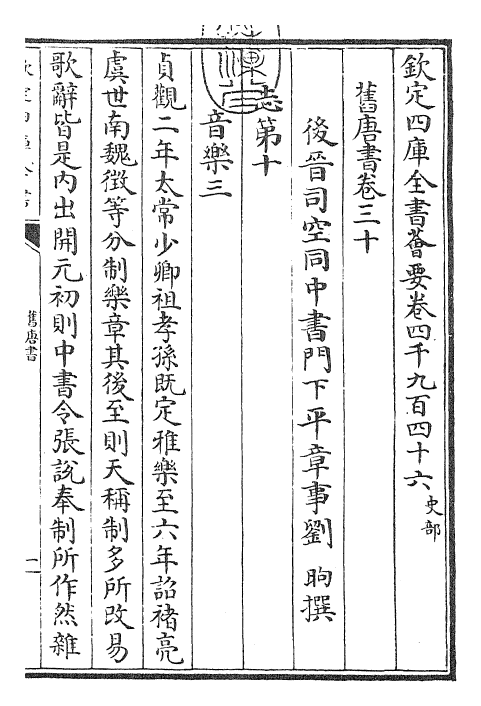 欽定四庫全書薈要卷四千九百四十六 史部
舊唐書卷三十
後晉司空同中書門下平章事劉 昫撰
志第十
音樂三
貞觀二年太常少卿祖孝孫既定雅樂至六年詔褚亮
虞世南魏徵等分制樂章其後至則天稱制多所改易
歌辭皆是内出開元初則中書令張說奉制所作然雜
舊唐書
一